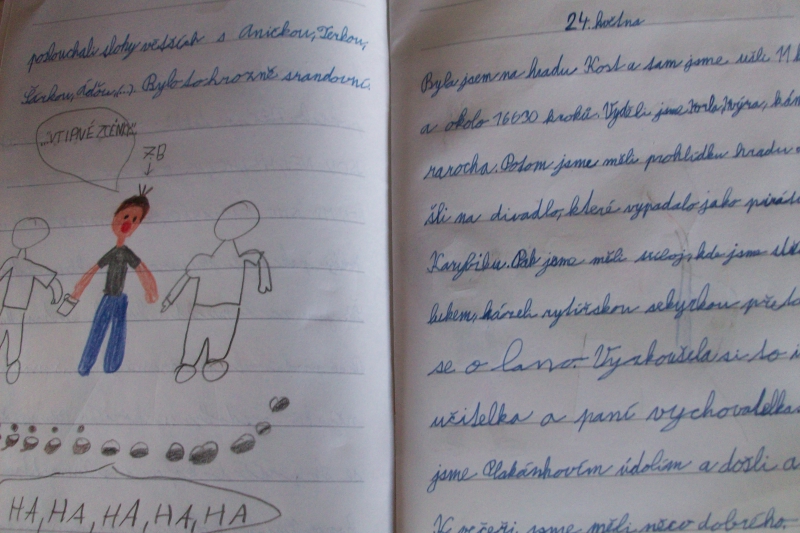 poslouchali sloky větších s Aničkou, Terkou,
Šárkou, (...). Bylo to hrozně srandovní.
ZB
HA, HA, HA, HA, HA
24. května
Byla jsem na hradu Kost a tam jsme ušli 11
a okolo 16630 kroků. Vyděli jsme Výra,
rarocha. Potom jsme měli prohlídku hradu
šli na divadlo, které vypadalo jako
Karybiku. Pak jsme měli kde jsme
lukem, házeli rytířskou sekyrkou
se o lano. Vyzkoušela si to i
učitelka a paní vychovatelka
jsme Plakánkovím údolím a došli a
K večeři jsme měli něco dobrého.